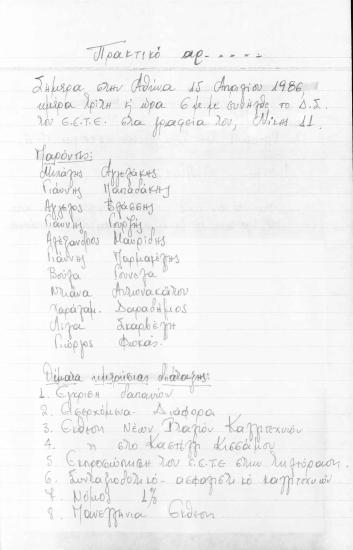 Πρακτικό αρ.....
Σήμερα στην Αθήνα 15 Απριλίου 1986,
ημέρα Τρίτη κ' ώρα 6 μ.μ. συνήλθε το Δ.Σ.
του Ε.Ε.Τ.Ε. στα γραφεία του, Νίκης 11.
Παρόντες:
Μιχάλης Αγγελάκης
Γιάννης Παπαδάκης
Άγγελος Βλάσσης
Γιάννης Γουρζής
Αλέξανδρος Μαυρίδης
Γιάννης Μαρμαρέλης
Βούλα Γουνελά
Ντιάνα Αντωνακάτου
Χαράλαμ. Δαραδήμος
Λίζα Σκαρβέλη
Γιώργος Φωκάς.
Θέματα ημερήσιας διάταξης:
1. Έγκριση δαπανών
2. Εισερχόμενα - Διάφορα
3. Έκθεση Νέων Βραζιλ Καλλιτεχνών
4. " στο Καστέλλι Κισσάμου
5. Εκπροσώπηση του Ε.Ε.Τ.Ε στην τηλεόραση
6. Συνταξιοδοτικό - ασφαλιστικό καλλιτεχνών
7. Νόμος 1%
8. Πανελλήνια Έκθεση